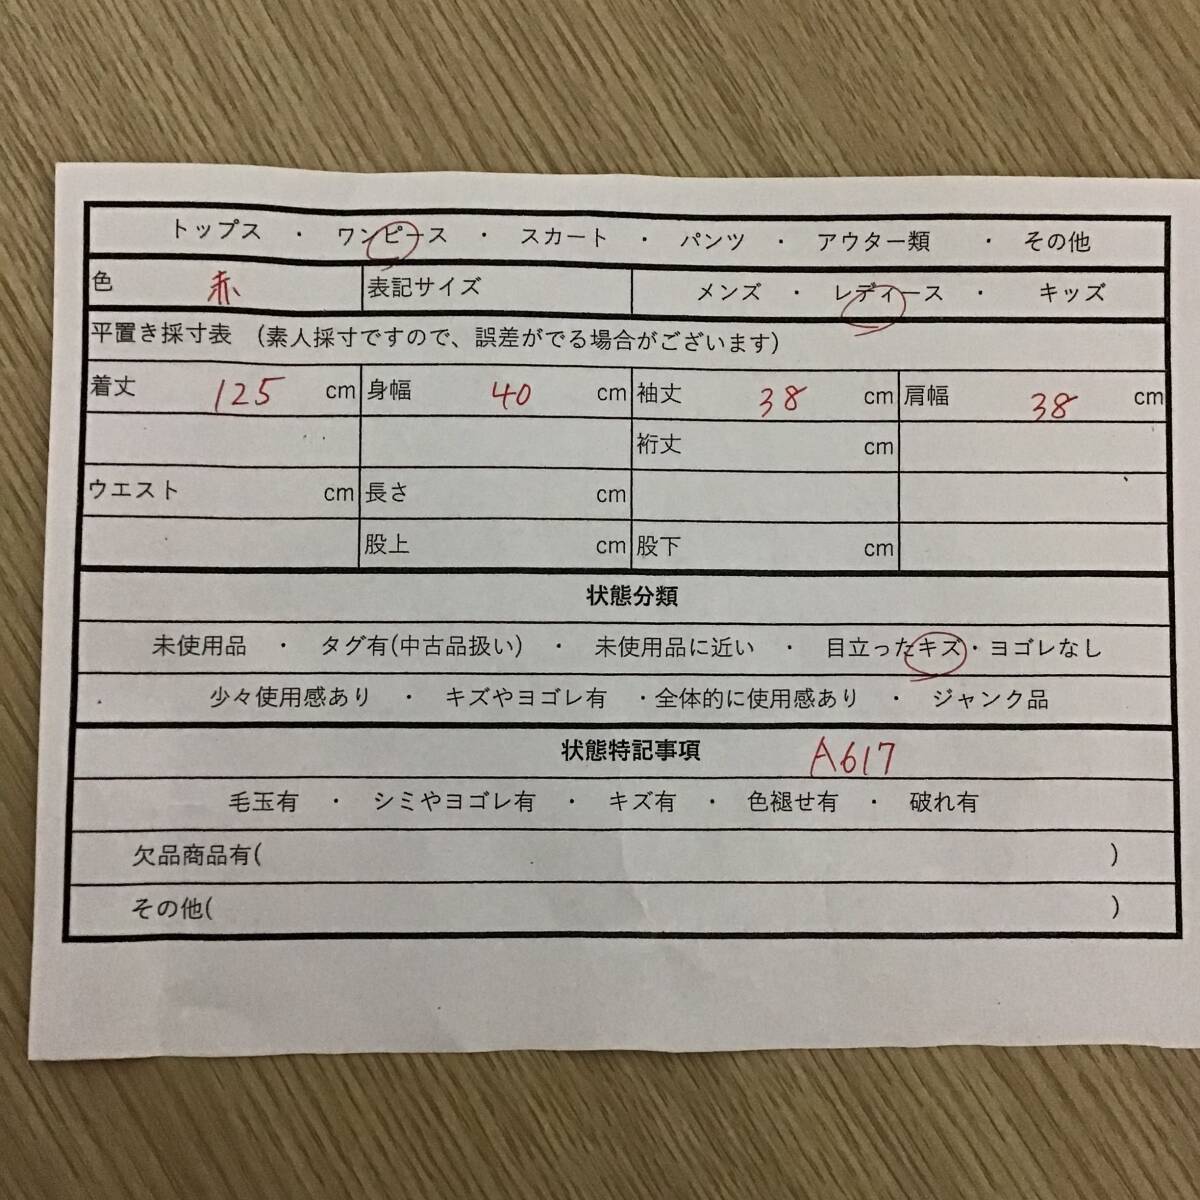 トップス ・ ワンピース ・ スカート ・ パンツ ・ アウター類 ・ その他
色 赤 表記サイズ メンズ ・ レディース ・ キッズ
平置き採寸表 (素人採寸ですので、誤差がでる場合がございます)
着丈 125 cm 身幅 40 cm 袖丈 38 cm 肩幅 38 cm
裄丈 cm
ウエスト cm 長さ cm
股上 cm 股下 cm
状態分類
未使用品 ・ タグ有(中古品扱い) ・ 未使用品に近い ・ 目立ったキズ・ヨゴレなし
少々使用感あり ・ キズやヨゴレ有 ・全体的に使用感あり ・ ジャンク品
状態特記事項 A617
毛玉有 ・ シミやヨゴレ有 ・ キズ有 ・ 色褪せ有 ・ 破れ有
欠品商品有( )
その他( )